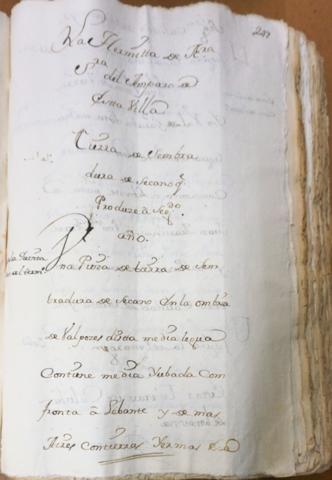 247
La Hermitta de Nra
Sra del Amparo de
Estta Villa
Tierra de Sembra
dura de Secano q.
Produze a Seg.do
año.
Una Pieza de tierra de Sem
bradura de Secano En la ombria
de Valpores distta media legua
Contiene media Yubada Com
fronta â Lebante y demas
Aires Contierras Yermas de